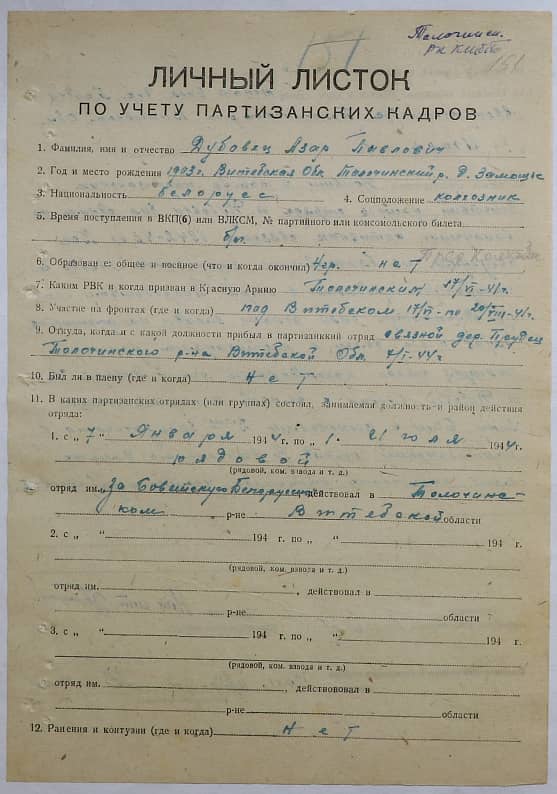 Толочинск.
РК КП(б)Б
151
ЛИЧНЫЙ ЛИСТОК
ПО УЧЕТУ ПАРТИЗАНСКИХ КАДРОВ
1. Фамилия, имя и отчество Дубовец Азар Павлович
2. Год и место рождения 1903г. Витебская Обл. Толочинский р. д. Замощье
3. Национальность белорус 4. Соцположение колхозник
5. Время поступления в ВКП(б) или ВЛКСМ, № партийного или комсомольского билета
б/п
6. Образование: общее и военное (что и когда окончил) 4 гр. нет
7. Каким РВК и когда призван в Красную Армию Толочинским 17/VI-41г.
8. Участие на фронтах (где и когда) под Витебском 17/VI- по 20/VII-41г.
9. Откуда, когда и с какой должности прибыл в партизанский отряд связной дер.
Толочинского р-на Витебской Обл. 7/I-44г
10. Был ли в плену (где и когда) нет
11. В каких партизанских отрядах (или группах) состоял, занимаемая должность и район действия
отряда:
1. с „ 7 " Января 1944 г. по „ 1 - " июля 1944 г.
рядовой
(рядовой, ком. взвода и т. д.)
отряд им. „За Советскую Белоруссию" действовал в Толочинс-
ком р-не Витебской области
2. с „ " 194 г. по „ " 194 г.
(рядовой, ком. взвода и т. д.)
отряд им. , действовал в
р-не области
3. с „ " 194 г. по „ " 194 г.
(рядовой, ком. взвода и т. д.)
отряд им. , действововал в
р-не области
12. Ранения и контузии (где и когда) нет